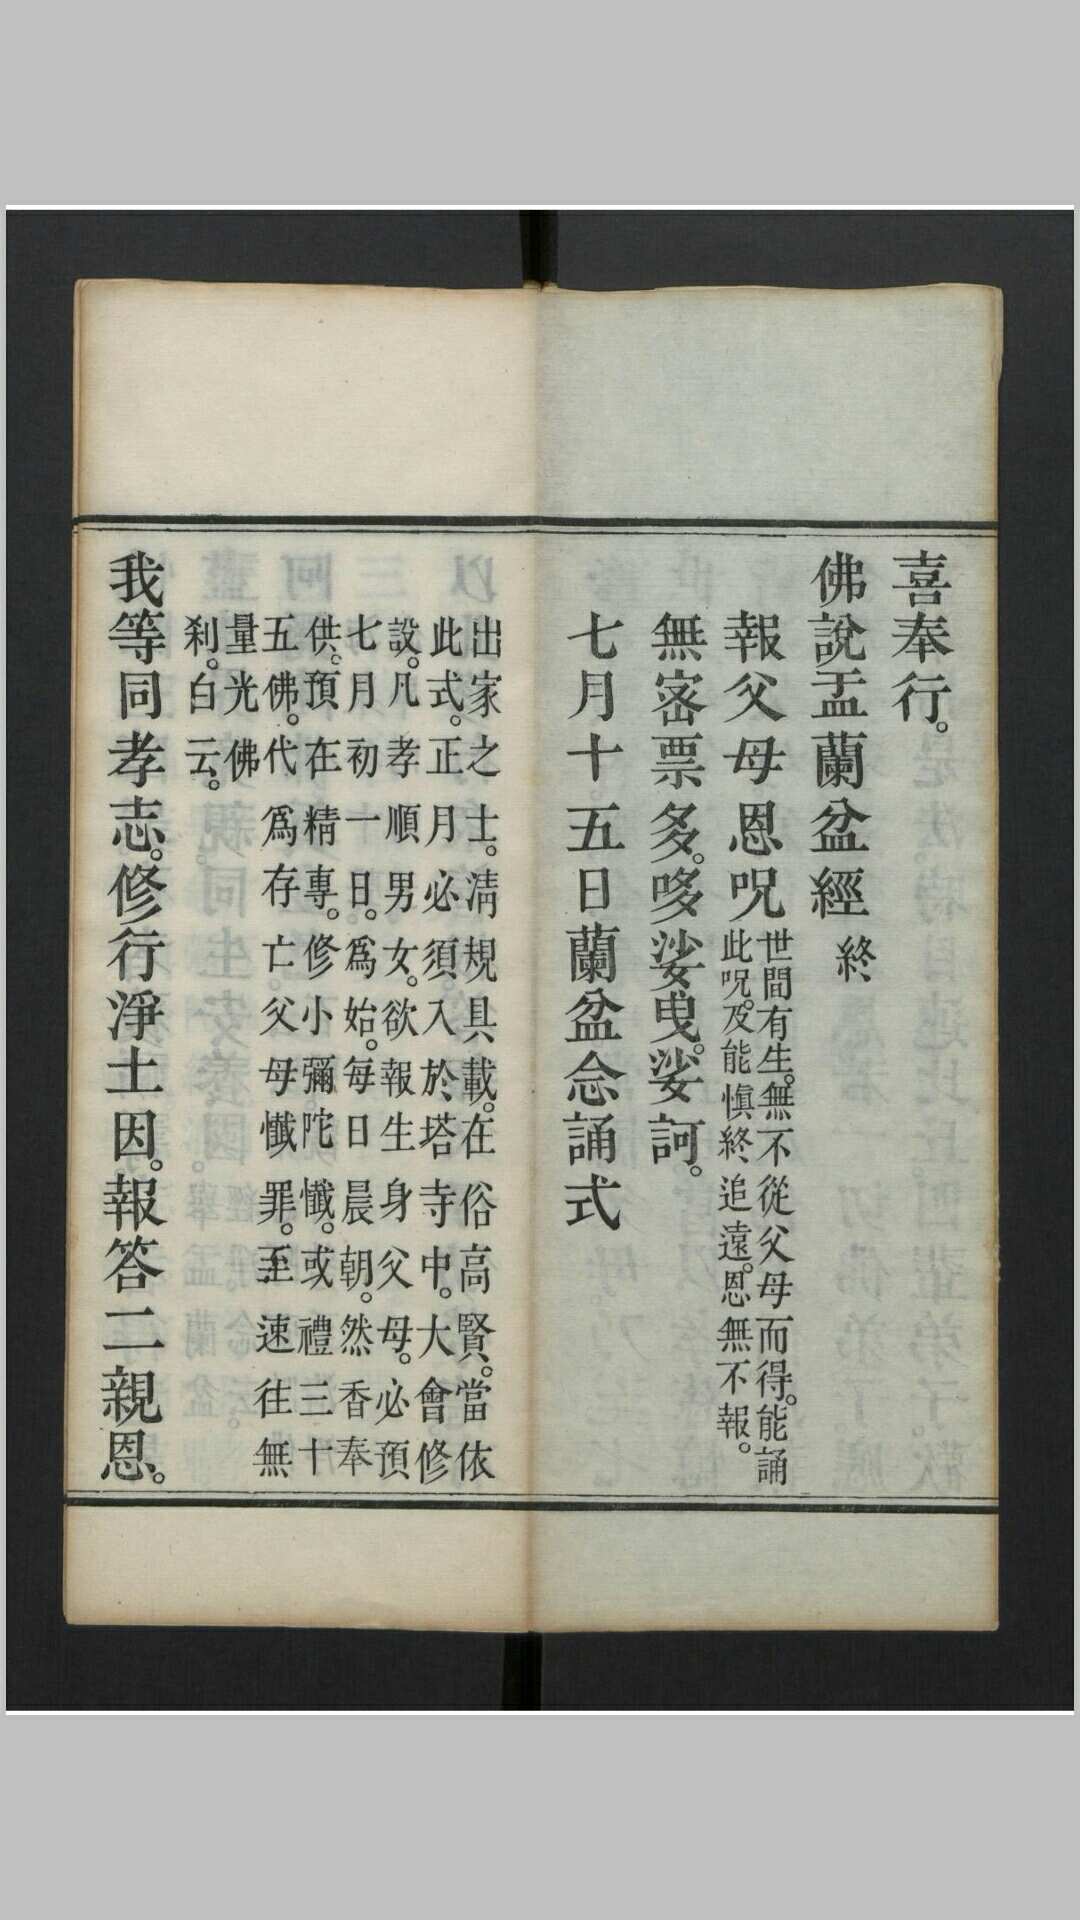 喜奉行。
佛說盂蘭盆經 終
報父母恩呪
世間有生。無不從父母而得。能誦
此呪。及能慎終追遠。恩無不報。
無宻票多。哆娑曳。娑訶。
七月十五日蘭盆念誦式
出家之士。清規具載。在俗高賢。當依
此式。正月必須。入於塔寺中。大會修
設。凡孝順男女。欲報生身父母。必預
七月初一日。爲始。每日晨朝。然香奉
供。預在精專。修小彌陀懺。或禮三十
五佛。代爲存亡。父母懺罪。至速往無
量光佛
刹。白云。
我等同孝志。修行淨土因。報答二親恩。